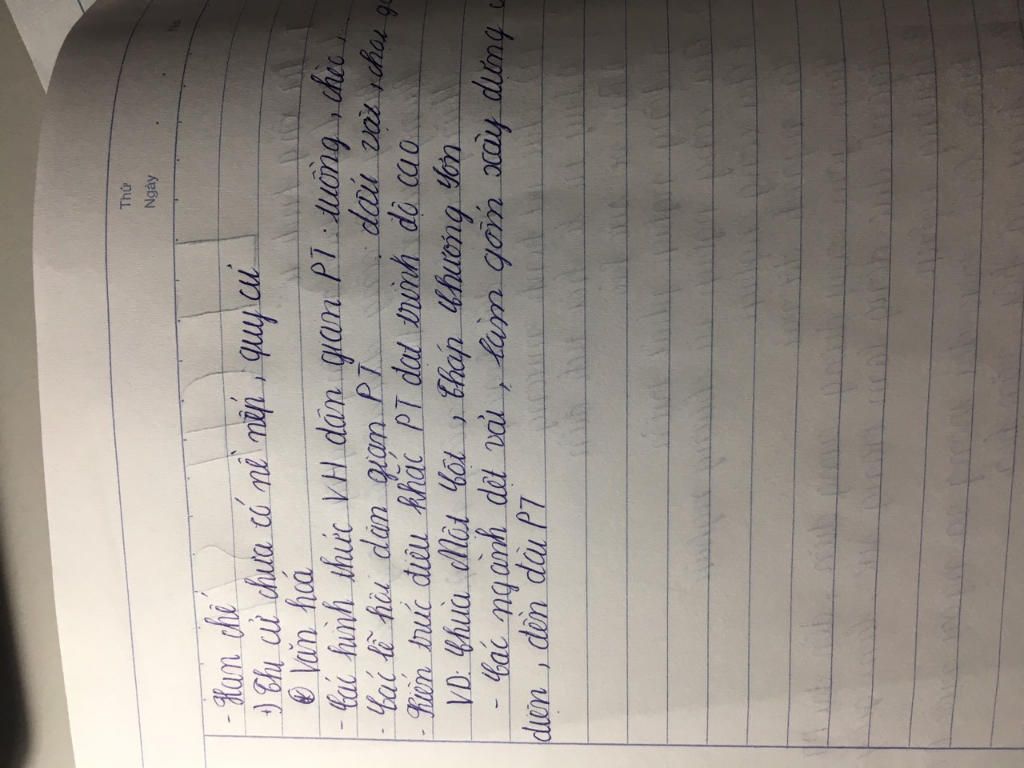 Thứ
Ngày
No.
- Hạn chế
+) Thi cử chưa có nề nếp, quy củ
c Văn hoá
- Các hình thức VH dân gian PT: tuồng, chèo,
- Các lễ hội dân gian PT: đấu vật, chơi
- Kiến trúc điêu khắc PT đạt trình độ cao
VD: Chùa Một Cột, tháp Chương Sơn
- Các ngành dệt vải, làm gốm, xây dựng
điện, đền đều PT